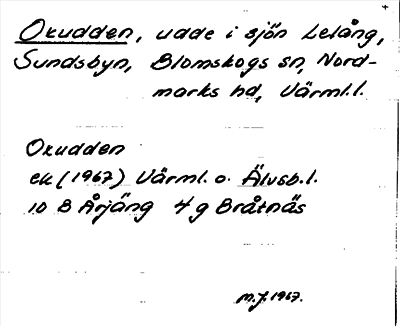 Oxudden, udde i sjön Lelång,
Sundsbyn, Blomskogs sn, Nord-
marks hd, Värml.l.
Oxudden
ek (1967) Värml. o. Älvsb.l.
10 B Årjäng 4g Bråtnäs
M.J. 1967.